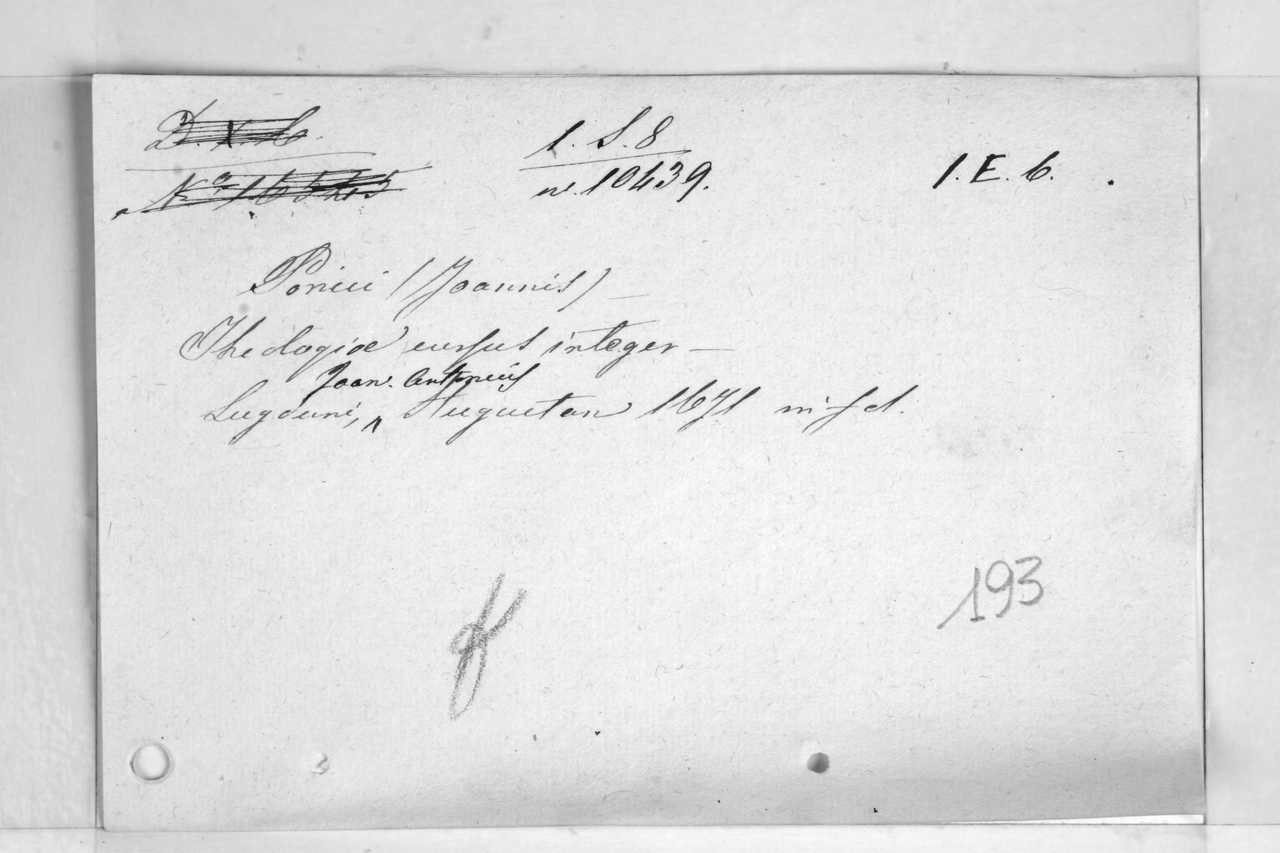 1. S. 8
n. 10439.
1. E. 6.
Poncii (Joannis)
Theologiæ cursus integer —
Joan. Antonius
Lugduni, ^ Huguetan 1671 in fol.
193